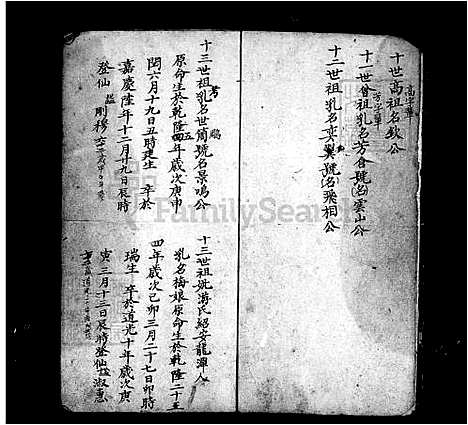 十世高祖名欽公
高字輩
十一世曾祖乳名芳合號名雲山公
十二世祖乳名奕巽號名飛相公
十三世祖考乳名世簡號名景鳴公
鵬
原命生於乾隆四五年歲次庚申
閏六月十九日丑時建生 卒於
嘉慶陸年十二月廿九日辰時
登仙 謚剛穆
十三世祖妣游氏紹安龍潭人
乳名梅娘原命生於乾隆二十五
四年歲次己卯三月二十七日卯時
瑞生 卒於道光十年歲次庚
寅三月十三日辰時登仙謚淑惠
FamilySearch